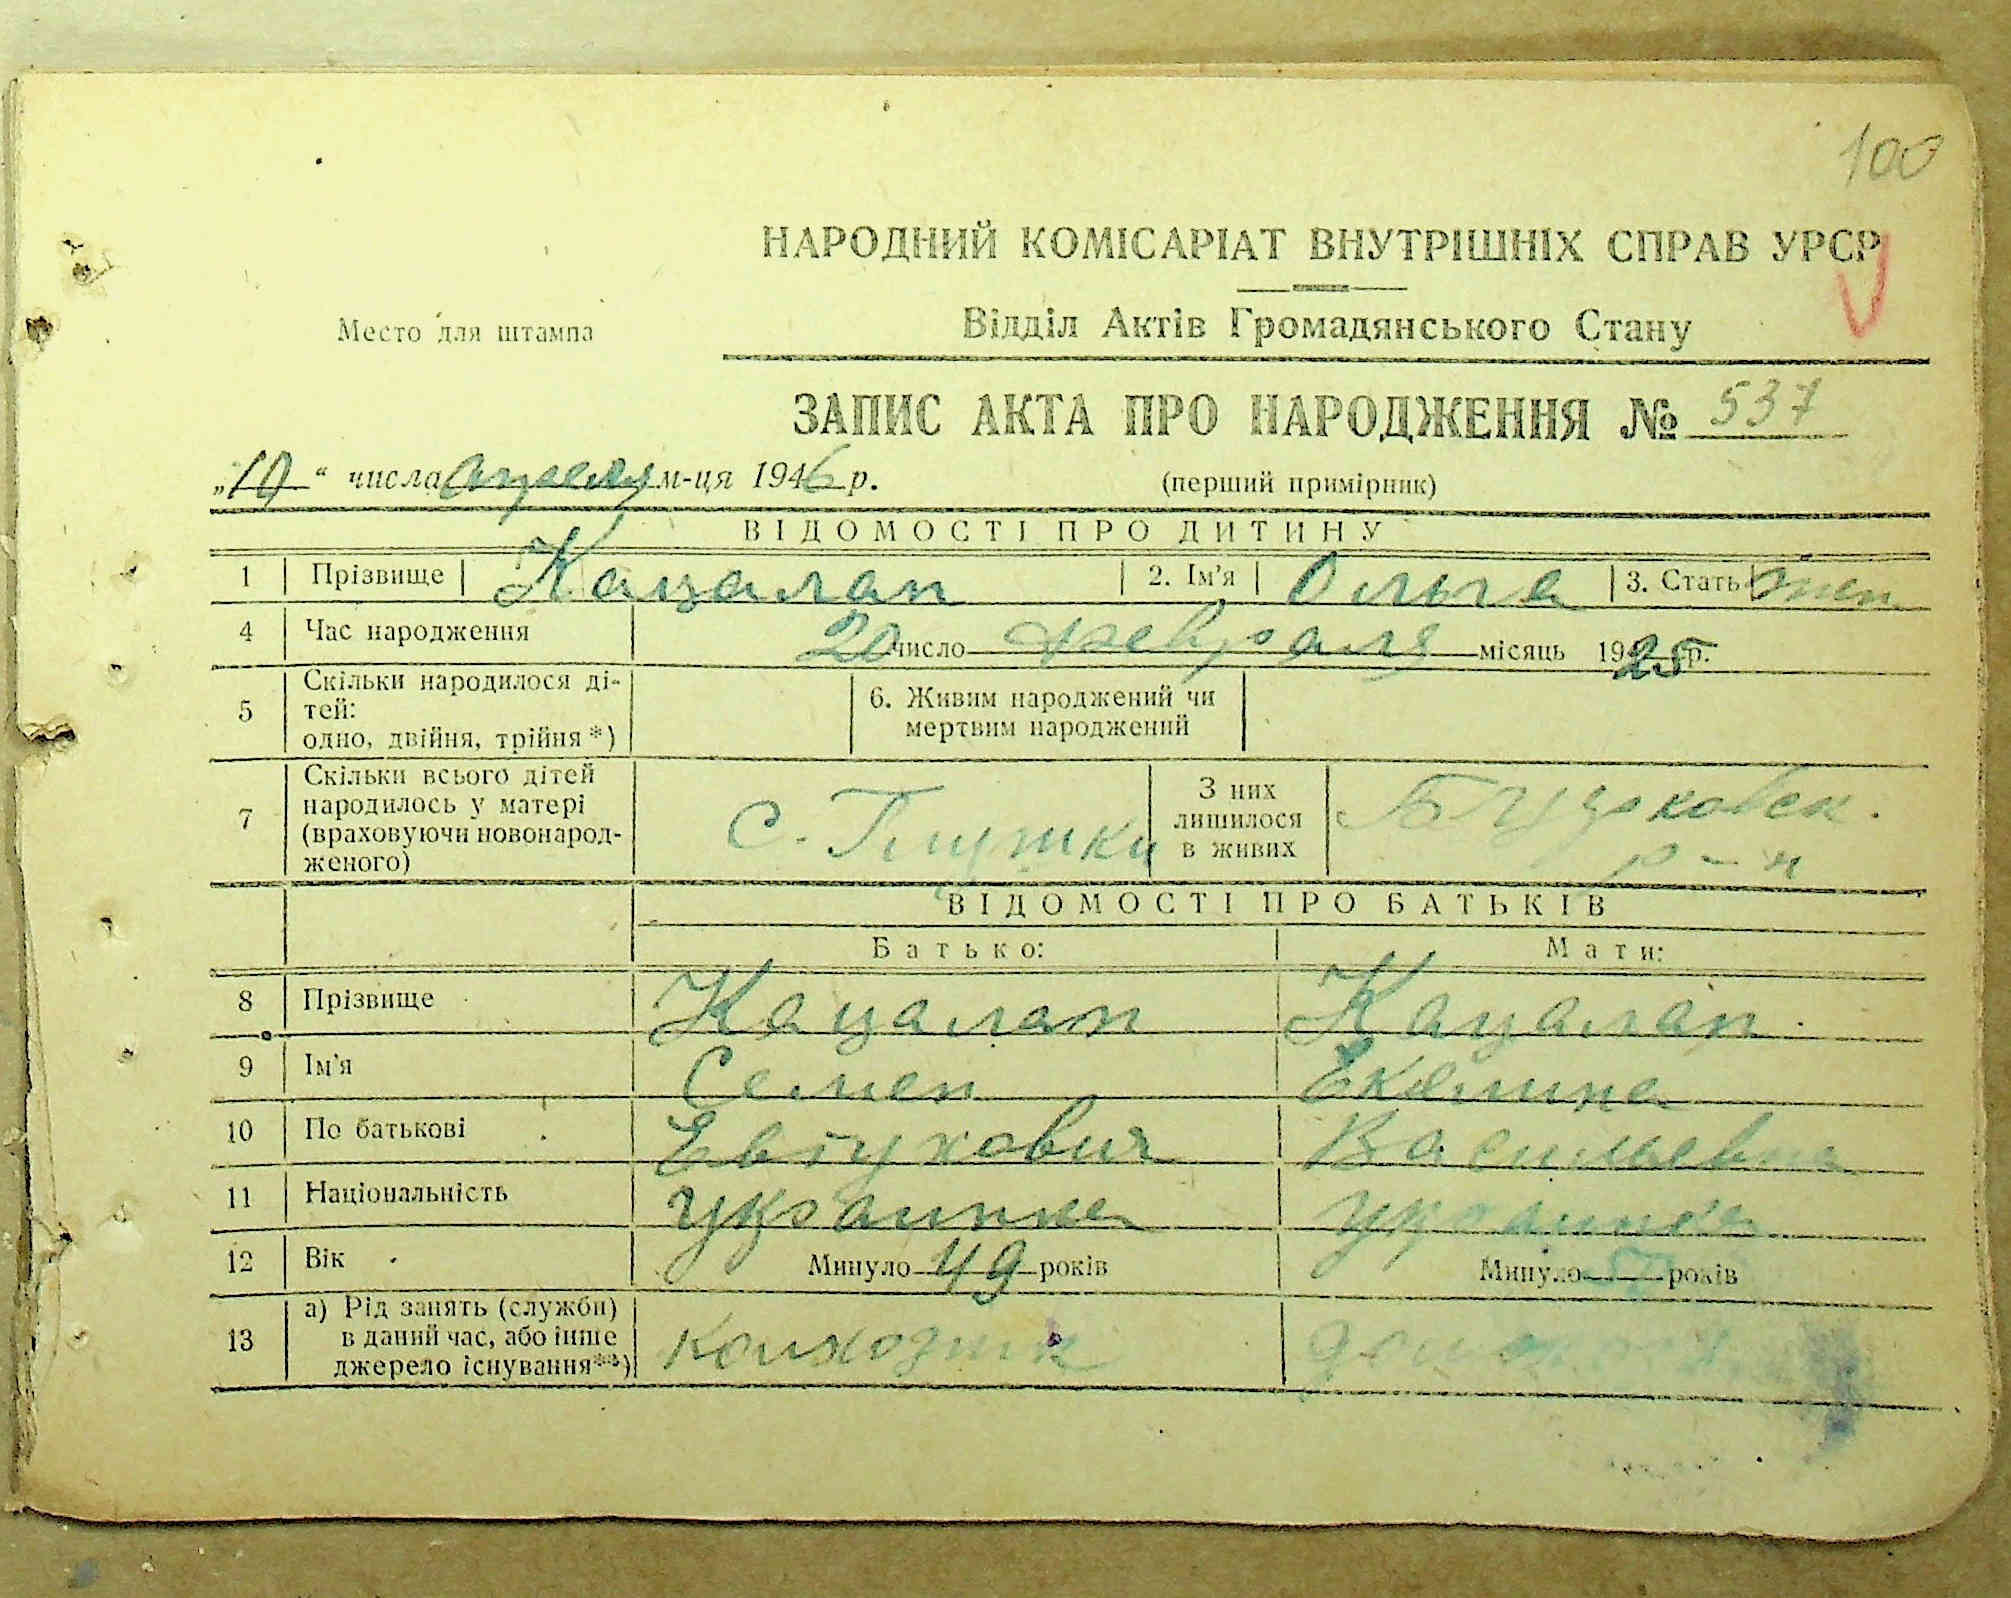 100
НАРОДНИЙ КОМІСАРІАТ ВНУТРІШНІХ СПРАВ УРСР
Место для штампа
Відділ Актів Громадянського Стану
ЗАПИС АКТА ПРО НАРОДЖЕННЯ № 537
„10“ числа апреля м-ця 1946 р. (перший примірник)
ВІДОМОСТІ ПРО ДИТИНУ
1 Прізвище Кацалап 2. Ім'я Ольга 3. Стать жен
4 Час народження 20 число февраля місяць 1925 р.
5 Скільки народилося ді-
тей:
одно, двійня, трійня *)
6. Живим народжений чи
мертвим народжений
7 Скільки всього дітей
народилось у матері
(враховуючи новонарод-
женого)
с. Глушки
З них
лишилося
в живих
р-н
ВІДОМОСТІ ПРО БАТЬКІВ
Батько: Мати:
8 Прізвище Кацалап Кацалап
9 Ім'я Семен
10 По батькові Евтухович Васильевна
11 Національність украинец украинка
12 Вік Минуло 49 років Минуло років
13 а) Рід занять (служби)
в даний час, або інше
джерело існування**)
колхозник